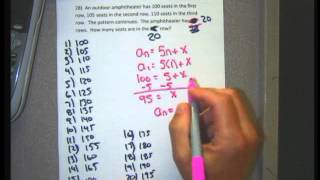 28) An outdoor amphitheater has 100 seats in the first
row, 105 seats in the second row, 110 seats in the third
row. The pattern continues. The amphitheater has 20
rows. How many seats are in the row?
20
1) 100
2) 105
3) 110
4) 115
5) 120
6) 125
7) 130
8) 135
9) 140
10) 145
11) 150
12) 155
13) 160
14) 165
16) 175
17) 180
18) 185
19) 190
20) 195
an = 5n + x
a1 = 5(1) + x
100 = 5 + x
-5 -5
95 = x
an =